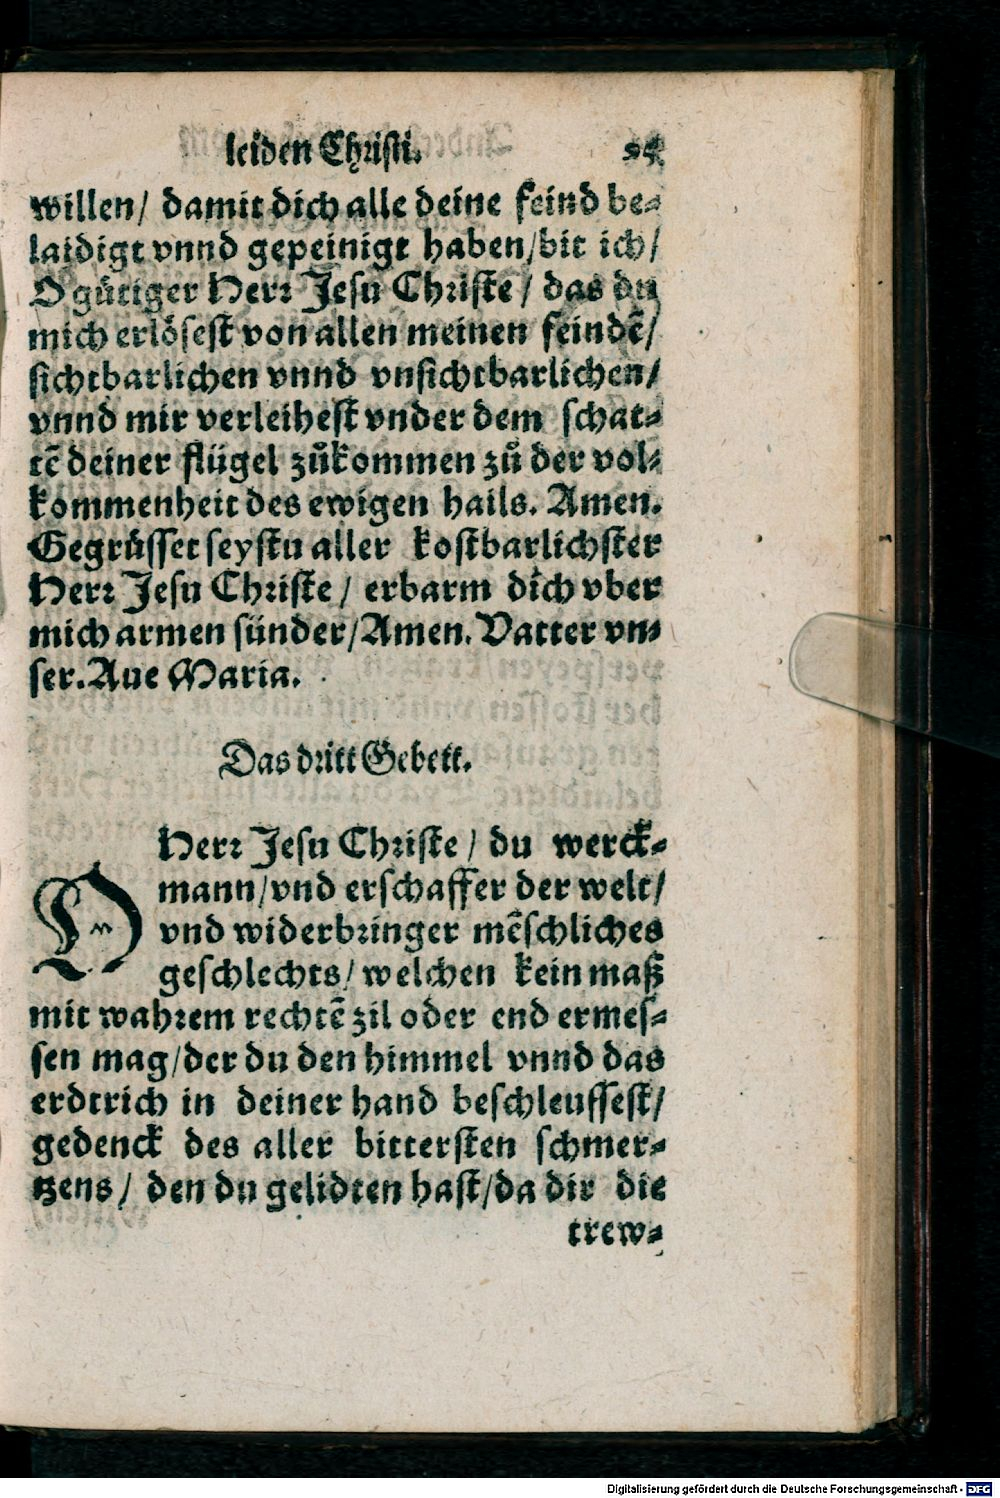 leiden Christi.
willen/ damit dich alle deine feind be-
laidigt vnnd gepeinigt haben/bit ich/
O gütiger Herr Jesu Christe/ das du
mich erlösest von allen meinen feindẽ/
sichtbarlichen vnnd vnsichtbarlichen/
vnnd mir verleihest vnder dem schat-
tẽ deiner flügel zůkommen zů der vol-
kommenheit des ewigen hails. Amen.
Gegrüsset seystu aller kostbarlichster
Herr Jesu Christe/ erbarm dich vber
mich armen sünder/Amen. Vatter vn-
ser. Aue Maria.
Das dritt Gebett.
O Herr Jesu Christe/ du werck-
mann/vnd erschaffer der welt/
vnd widerbringer mẽschliches
geschlechts/ welchen kein maß
mit wahrem rechtẽ zil oder end ermes-
sen mag/der du den himmel vnnd das
erdtrich in deiner hand beschleussest/
gedenck des aller bittersten schmer-
tzens/ den du gelidten hast/da dir die
trew-
Digitalisierung gefördert durch die Deutsche Forschungsgemeinschaft - DFG